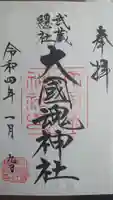 奉拝
武蔵
總社
大國魂神社
令和四年一月